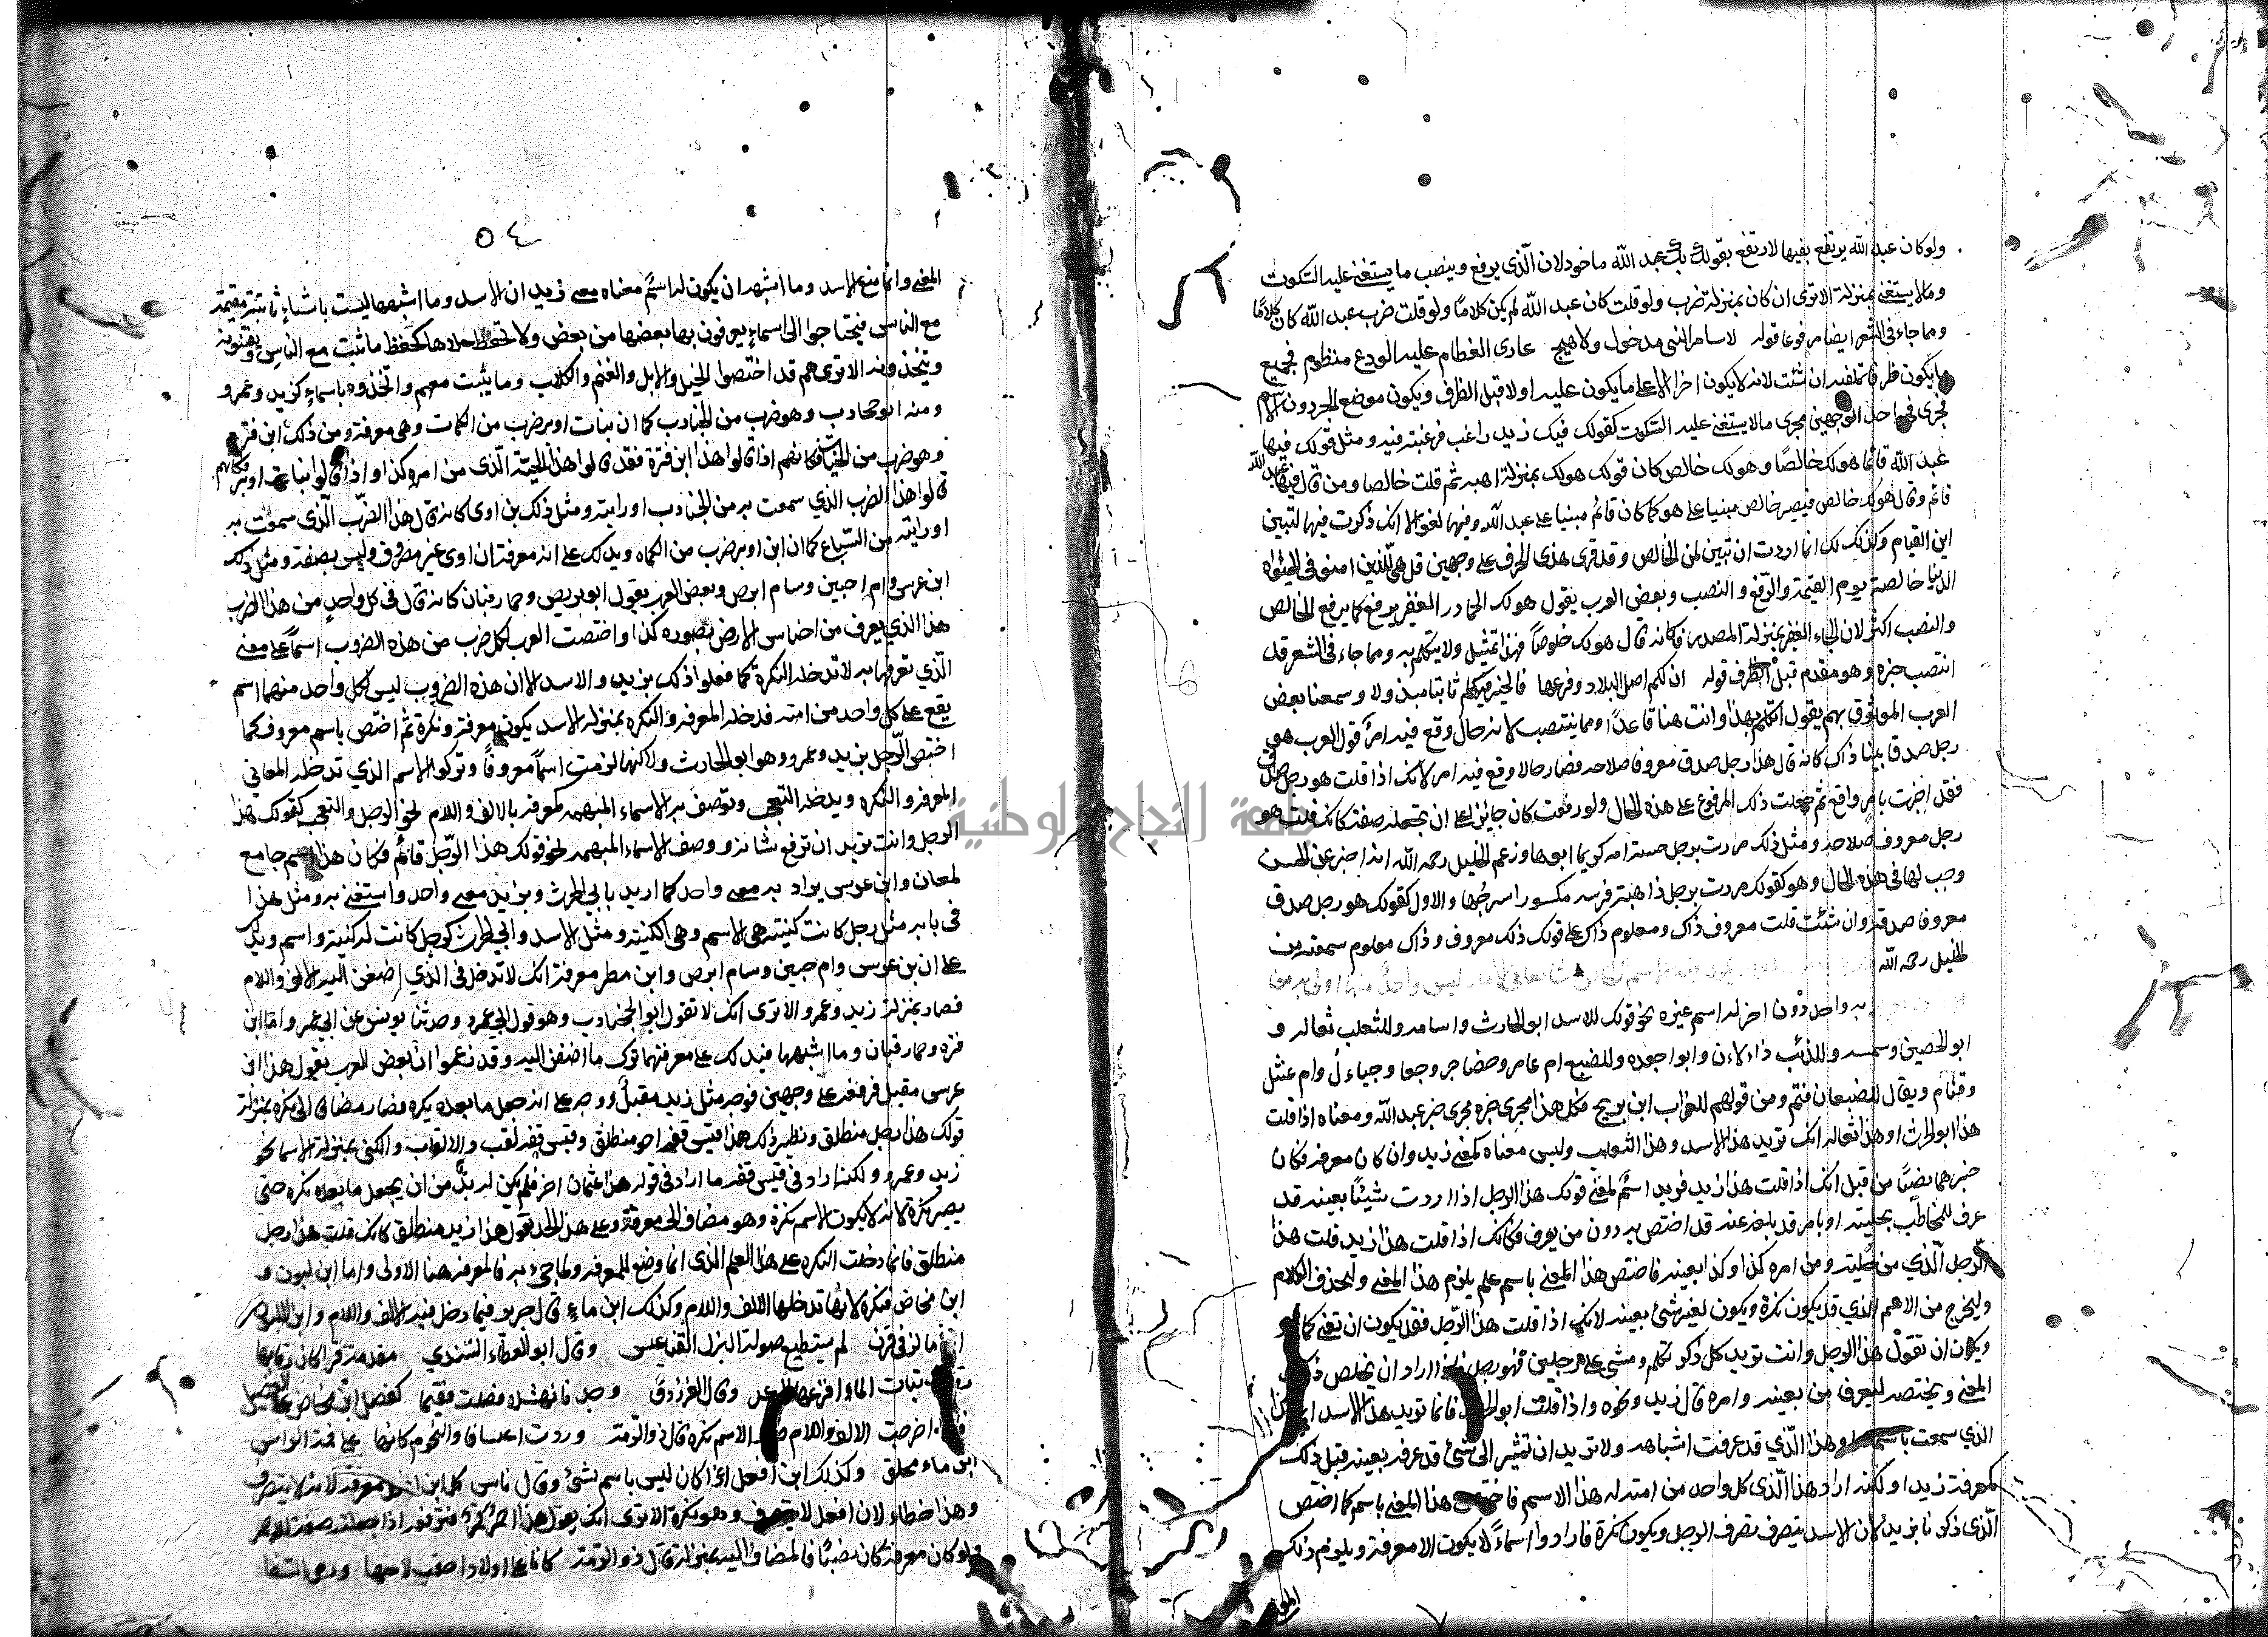 ولو كان عبد الله يرتفع بفيها لارتفع بقولك بك عبد الله ماخوذ لان الّذي يرفع وينصب ما يستغنى عليه السّكوت
وما لا يستغنى بمنزلة الا ترى ان كان بمنزلة ضرب ولو قلت كان عبد الله لم يكن كلامًا ولو قلت ضرب عبد الله كان كلامًا
ومما جاء في الشعر ايضا مرفوعا قوله لا سافر النى مدخول ولا هيج عارى العظام عليه الودع منظوم فجميع
ما يكون ظرفا تلغيه ان شئت لانه لا يكون اخرا الا على ما يكون عليه اولا قبل الظرف ويكون موضع الخبر دون الاسم
فجرى في احد الوجهين مجرى ما لا يستغنى عليه السّكوت كقولك فيك زيد راغب فرغبته فيه ومثل قولك فيها
عبد الله قائما هو لك خالصًا وهو لك خالص كان قولك هو لك بمنزلة اهبه ثم قلت خالصا ومن قال فيها عبد الله
قائم وقال هو لك خالص فيصير خالص مبنيا على هو كما كان قائم مبنيا على عبد الله وفيها لغو الا انك ذكرت فيها لتبين
اين القيام وكذلك لك انما اردت ان تبين لمن الخالص وقد قرى هذى الحرف على وجهين قل هي للّذين امنوا في الحيوة
الدّنيا خالصة يوم القيمة والرّفع والنصب وبعض العرب يقول هو لك الجماء الغفير يرفع كما يرفع الخالص
والنصب اكثر لان الجماء الغفير بمنزلة المصدر فكانه قال هو لك خلوصًا فهذا تمثيل ولا يتكلم به ومما جاء في الشعر قد
انتصب خبره وهو مقدم قبل الظرف قوله ان لكم اصل البلاد وفرعها فالخير فيكم ثابتا مبذولا وسمعنا بعض
العرب الموثوق بهم يقول اتكلم بهذا وانت هنا قاعدًا ومما ينتصب لانه حال وقع فيه امر قول العرب هو
رجل صدق معلوما ذاك كانه قال هذا رجل صدق معروفا صلاحه فصار حالا وقع فيه امر لانك اذا قلت هو رجل صدق
فقد اخبرت بامر واقع ثم جعلت ذلك المرفوع على هذه الحال ولو رفعت كان جايزا على ان تجعله صفة كانك قلت هو
رجل معروف صلاحه ومثل ذلك مررت برجل حسنة امه كريما ابوها وزعم الخليل رحمه الله انه اخبر عن الحسن
وجب لها في هذه الحال وهو كقولك مررت برجل ذاهبة فرسه مكسورا سرجها والاول كقولك هو رجل صدق
معروفا صدقه وان شئت قلت معروف ذاك ومعلوم ذاك على قولك ذلك معروف وذاك معلوم سمعته من
الخليل رحمه الله
به واحد دون اخر له اسم غيره نحو قولك للاسد ابو الحارث واسامه وللثعلب ثعاله و
ابو الحصين وسمسم وللذئب دالان وابو جعده وللضبع ام عامر وحضاجر وجعار وجيال وام عنثل
وقثام ويقال للضبعان قثم ومن قولهم للغراب ابن بريح فكل هذا يجرى خبره مجرى خبر عبد الله ومعناه اذا قلت
هذا ابو الحرث او هذا ثعاله انك تريد هذا الاسد وهذا الثعلب وليس معناه كمعنى زيد وان كان معرفة فكان
خبرهما نصبًا من قبل انك اذا قلت هذا زيد فزيد اسم لمعنى قولك هذا الرجل اذا اردت شيئًا بعينه قد
عرف المخاطب بحليته او بامر قد بلغه عنه قد اختص به دون من يعرف فكانك اذا قلت هذا زيد قلت هذا
الرّجل الّذي من حليته ومن امره كذا وكذا بعينه فاختص هذا المعنى باسم علم يلزم هذا المعنى وليحذف الكلام
وليخرج من الاسم الذي قد يكون نكرة ويكون لغير شئ بعينه لانك اذا قلت هذا الرّجل فقد يكون ان تعنى كما
ويكون ان تقول هذا الرجل وانت تريد كل ذكر تكلم ومشى على رجلين فهو رجل اراد ان يخلص ذلك
المعنى ويختصه ليعرف من بعينه وامره قال زيد ونحوه واذا قلت ابو الحارث فانما تريد هذا الاسد اى هذا
الذي سمعت باسمه او هذا الّذي قد عرفت اشباهه ولا تريد ان تشير الى شئ قد عرفه بعينه قبل ذلك
كمعرفة زيد او لكنه اراد هذا الّذي كل واحد من امته له هذا الاسم فاختص هذا المعنى باسم كما اختص
الّذي ذكرنا بزيد لان الاسد يتصرف تصرف الرجل ويكون نكرة فارادوا اسماءً لا يكون الا معرفة ويلزم ذلك
المعنى
٥٤
المعنى وانما منع الاسد وما اشبهه ان يكون له اسم معناه معنى زيد ان الاسد وما اشبهها ليست باشياءٍ ثابتة مقيمة
مع الناس فيحتاجوا الى اسماءٍ يعرفون بها بعضها من بعض ولا تحفظ حلاها كحفظ ما ثبت مع الناس ويقتنونه
ويتخذونه الا ترى هم قد اختصوا الخيل والابل والغنم والكلاب وما يثبت معهم واتّخذوه باسماءٍ كزيد وعمرو
ومنه ابو جخادب وهو ضرب من الجنادب كما ان بنات اوبر ضرب من الكمات وهي معرفة ومن ذلك ابن قترة
وهو ضرب من الحيات فكانهم اذا قالوا هذا ابن قترة فقد قالوا هذا الحيّة الّذي من امره كذا واذا قالوا بنات اوبر فكانهم
قالوا هذا الضرب الذي سمعت به من الجنادب او رايته ومثل ذلك بن اوى كانه قال هذا الضّرب الّذي سمعت به
او رايته من السّباع كما ان ابن اوبر ضرب من الكماه ويدلك على انه معرفة ان اوى غير مصروف وليس بصفة ومثل ذلك
ابن عرس وام حبين وسام ابرص وبعض العرب يقول ابو بريص وحمار قبان كانه قال في كل واحدٍ من هذا الضرب
هذا الذي يعرف من احناس الارض بصورة كذا واختصت العرب لكل ضرب من هذه الضروب اسماً على معنى
الّذي تعرفها به لا تدخله النكرة كما فعلوا ذلك بزيد والاسد الا ان هذه الضروب ليس لكل واحد منهما اسم
يقع على كل واحد من امته قد خله المعرفه والنكره بمنزلة الاسد يكون معرفة ونكرة ثم اختص باسم معروف كما
اختص الرّجل بزيد وعمرو وهو ابو الحارث ولاكنها لزمت اسمًا معروفًا وتركوا الاسم الذي تدخله المعانى
المعرفه والنكره ويدخله التعجب وتوصف به الاسماء المبهمه كمعرفته بالالف واللام نحو الرجل والتعجب كقولك هذا
الرجل وانت تريد ان ترفع شانه ووصف الاسماء المبهمه نحو قولك هذا الرّجل قائم فكان هذا اسم جامع
لمعان وابن عرس يراد به معنى واحد كما اريد بابي الحرث وبزيد معنى واحد واستغنى به ومثل هذا
في بابه مثل رجل كانت كنيته هي الاسم وهي الكنية ومثل الاسد وابي الحارث كرجل كانت له كنية واسم ويدلك
على ان بن عرس وام حبين وسام ابرص وابن مطر معرفة انك لا تدخل في الذي اضفن اليه الالف واللام
فصار بمنزلة زيد وعمرو الا ترى انك لا تقول ابو الجخادب وهو قول ابي عمرو وحدثنا يونس عن ابي عمرو واما ابن
قتره وحمار قبان وما اشبهها فيدلك على معرفتهما ترك ما اضفن اليه وقد زعموا ان بعض العرب يقول هذا ابن
عرس مقبل فرفعه على وجهين فوجه مثل زيد مقبلٌ ووجه على انه جعل ما بعده نكره فصار مضافا الى نكره بمنزلة
قولك هذا رجل منطلق ونظير ذلك هذا قيس قفه اخر منطلق وقيس قفه لقب والالقاب والكنى بمنزلة الاسما نحو
زيد وعمرو ولكنه اراد في قيس قفه ما اراد في قوله هذا عثمان اخر فلم يكن له بدٌّ من ان يجعل ما بعده نكره حتى
يصير نكرة لانه لا يكون الاسم نكرة وهو مضاف الى معرفة وعلى هذا الحد تقول هذا زيد منطلق كانك قلت هذا رجل
منطلق فانما دخلت النكره على هذا العلم الذي انما وضع للمعرفه ولها جئ به فالمعرفه هنا الاولى واما ابن لبون و
ابن مخاض فنكره لانها تدخلها الالف واللام وكذلك ابن ماءٍ قال جرير فيما دخل فيه الالف واللام وابن اللبون
اذا ما لز في قرن لم يستطع صولة البزل القناعيس وقال ابو العطاء السّندي مقدمة قزا كان رقابها
رقاب بنات الماء افزعها الرعد وقال الفرزدق وجدنا نهشلا فضلت فقيما كفضل ابن المخاض على الفصيل
فاذا اخرجت الالف واللام صار الاسم نكرة قال ذو الرّمة وردت اعتسافا والنّجوم كانها على قمة الراس
ابن ماء محلق وكذلك ابن افعل اذا كان ليس باسم بشئ وقال ناس كل ابن افعل معرفة لانه لا ينصرف
وهذا خطاءٌ لان افعل لا ينصرف وهو نكرة الا ترى انك تقول هذا احمر فترفعه اذا جعلته صفة للاحمر
ولو كان معرفة كان نصبًا فالمضاف اليه بمنزلة قال ذو الرّمة كانا على اولاد احقب لاحها ورمى السّفا